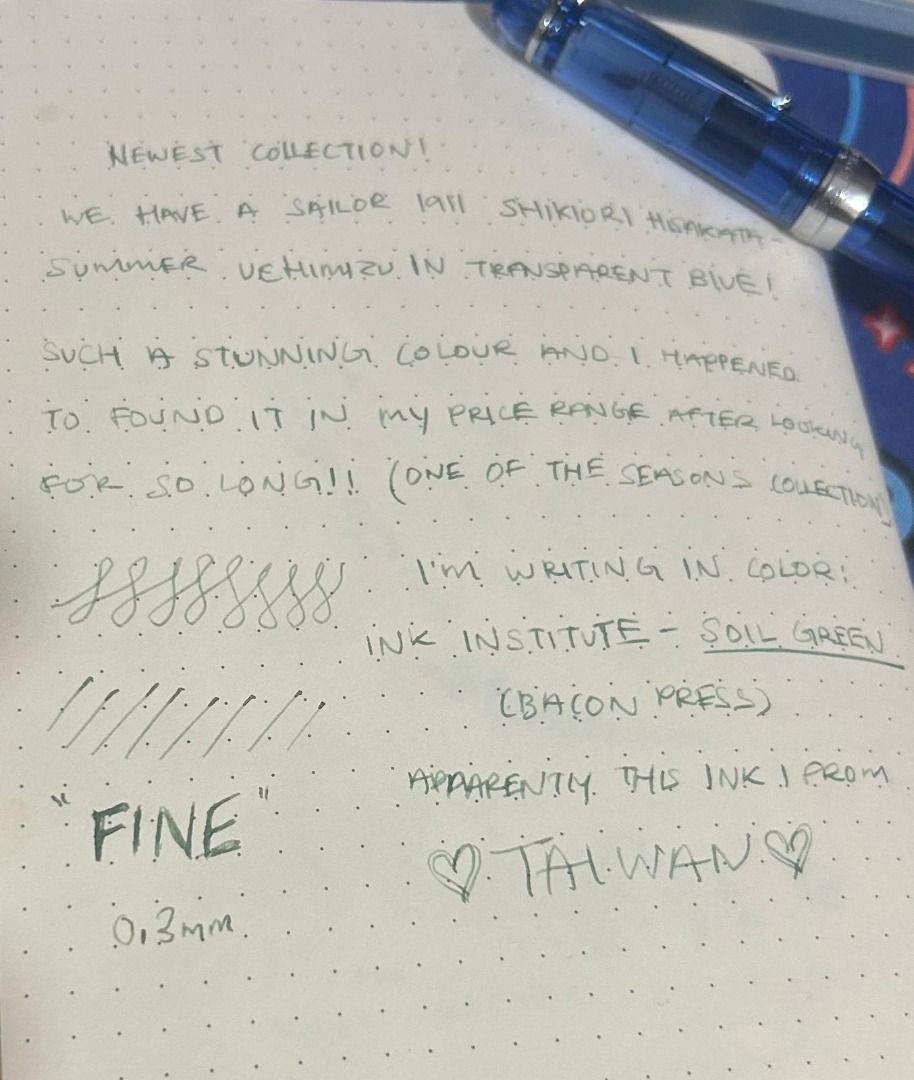 NEWEST COLLECTION!
WE HAVE A SAILOR 1911 SHIKIORI HISAKATA -
SUMMER UEHIMIZU IN TRANSPARENT BLUE!
SUCH A STUNNING COLOUR AND I HAPPENED
TO FOUND IT IN MY PRICE RANGE AFTER LOOKING
FOR SO LONG!! (ONE OF THE SEASONS COLLECTION)
I'M WRITING IN COLOR:
INK INSTITUTE - SOIL GREEN
(BACON PRESS)
APPARENTLY THIS INK I FROM
♡ TAIWAN ♡
"FINE"
0.3mm